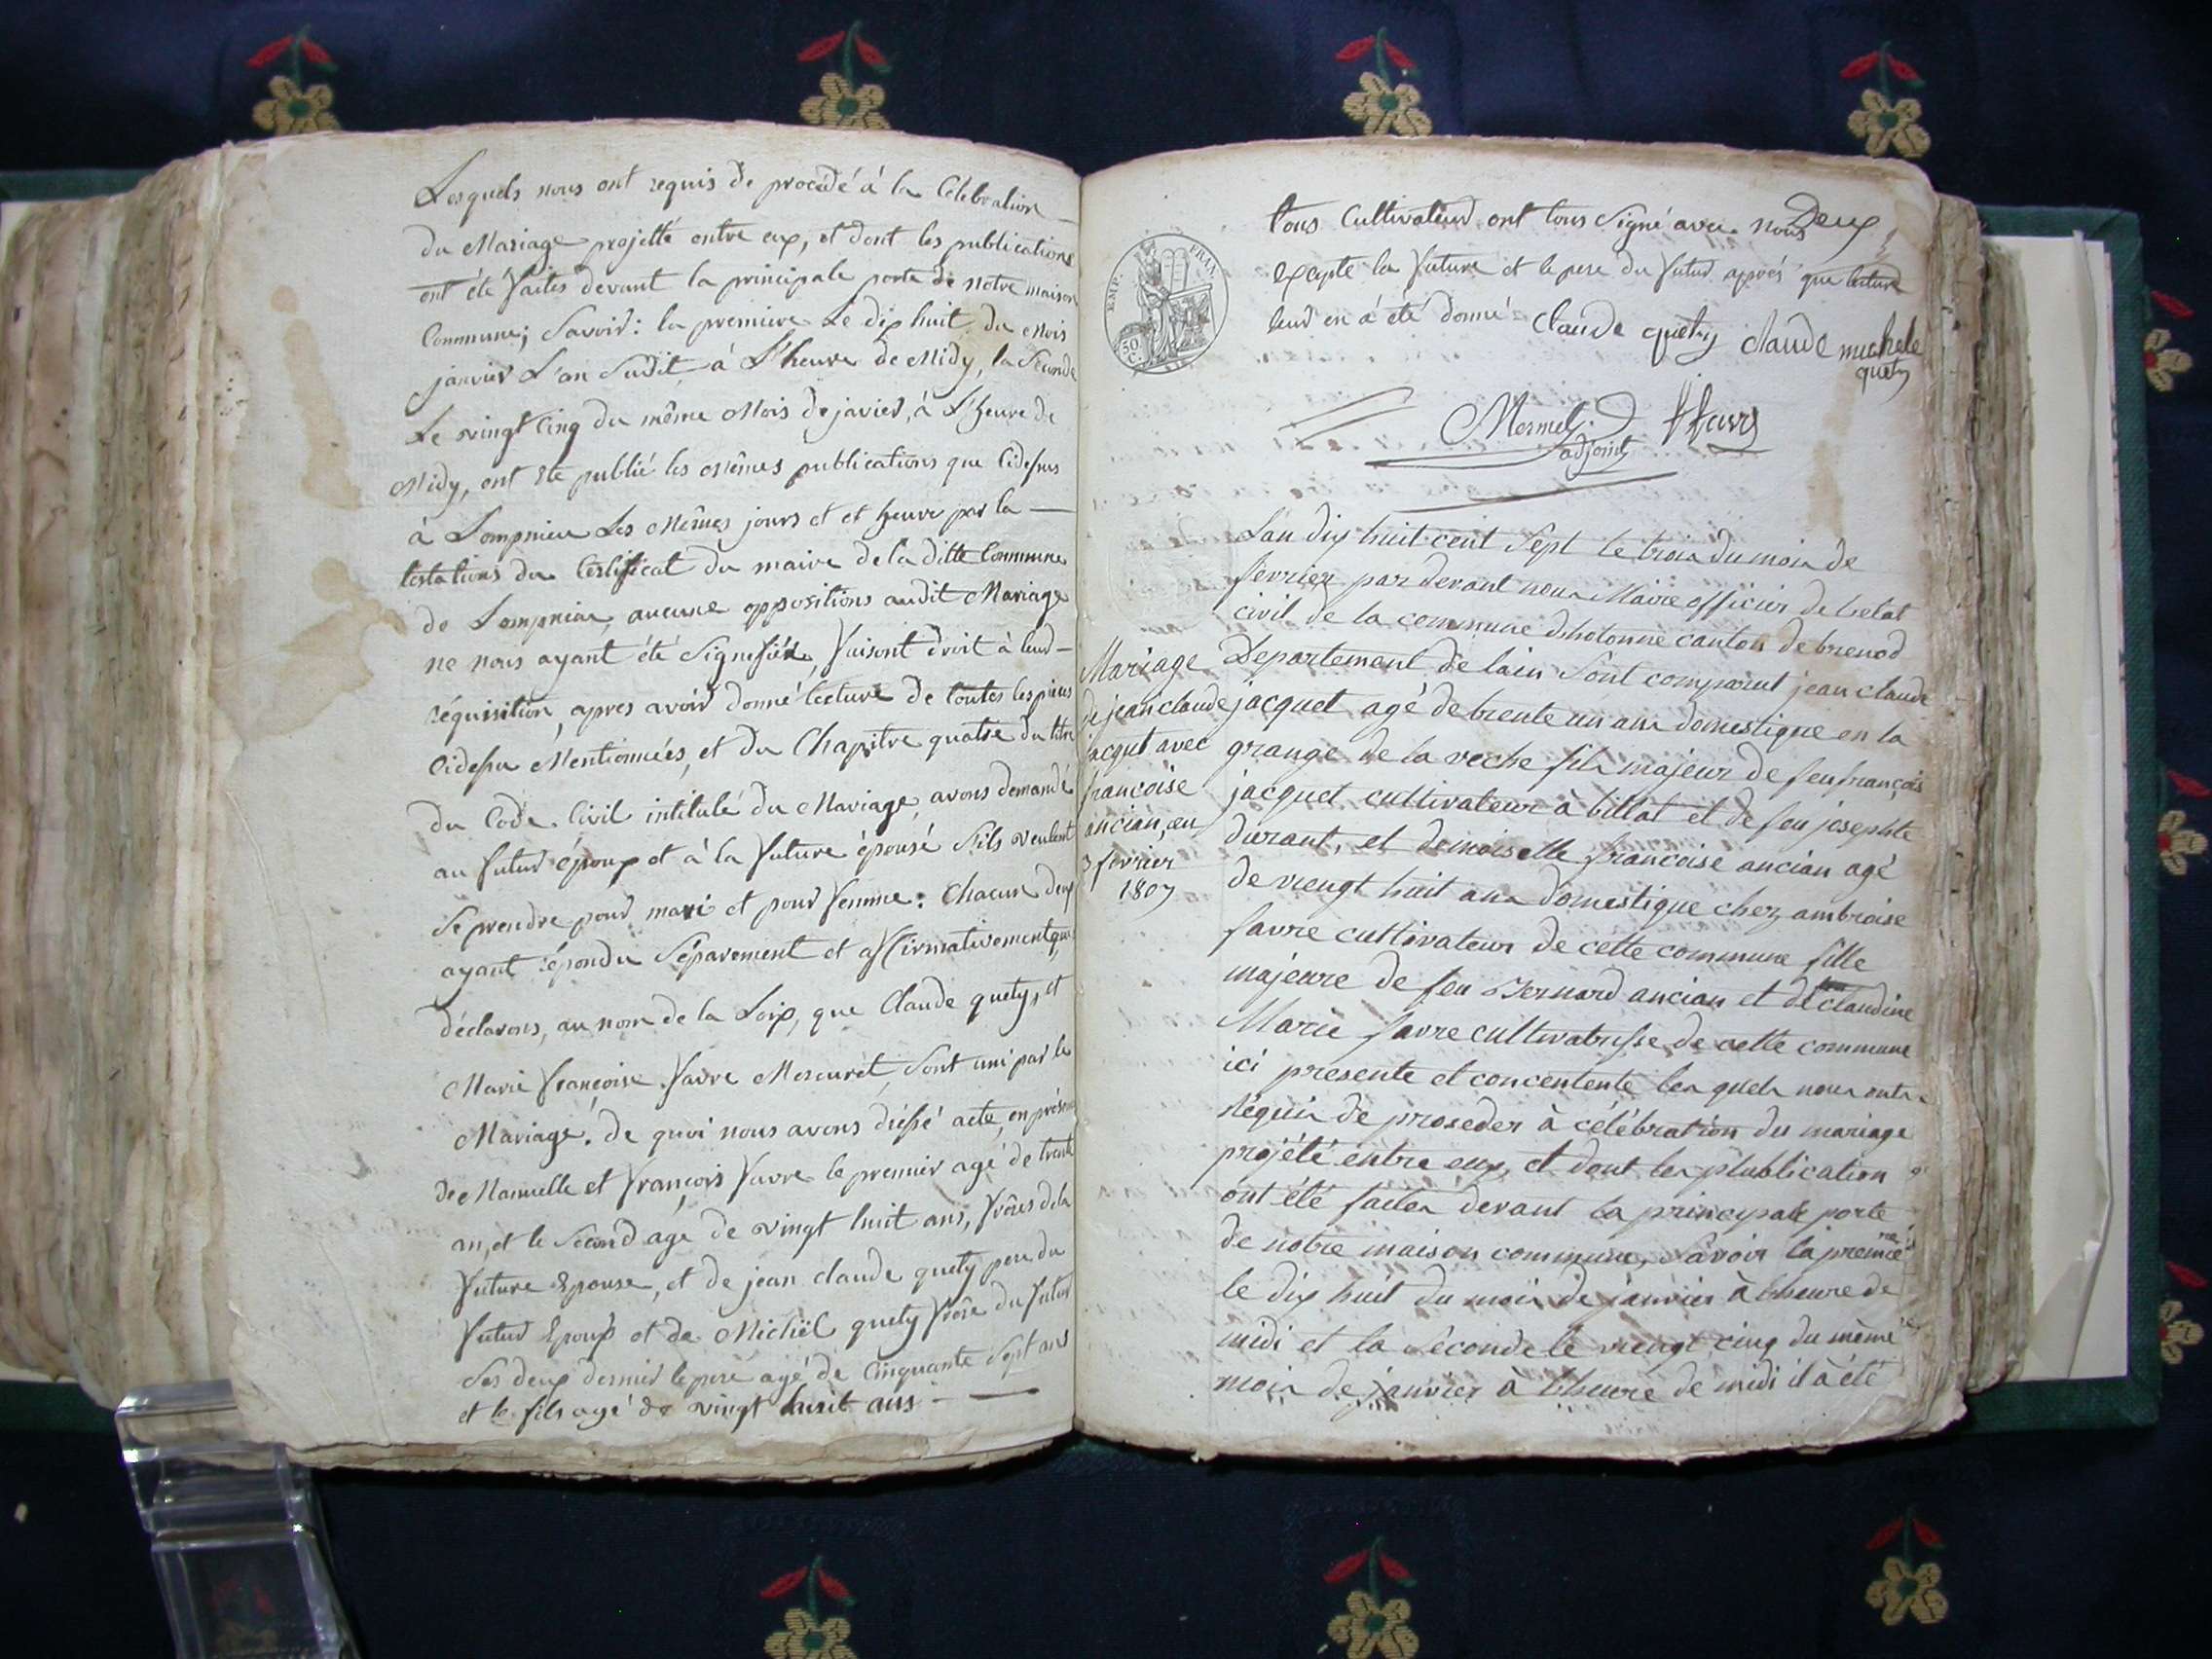 Lesquels nous ont requis de procédé à la Célébration
du Mariage projetté entre eux, et dont les publications
ont été faites devant la principale porte de notre maison
Commune; Savoir: la premiere Le dix huit du Mois
janvier L'an Sudit à L'heure de Midy, la Seconde
Le vingt Cinq du même Mois de javier, à L'heure de
Midy, ont Eté publié les mêmes publications que Cidesus
à Lompnieu Les Mêmes jours et et heure par la
testations du Certificat du maire de la ditte Commune
de Lompnieu, aucune oppositions audit Mariage
ne nous ayant été Signifiée, faisont droit à leur
réquisition, apres avoir donné lecture de toutes les pieces
Cidesu Mentionnées, et du Chapitre quatre du titre
du Code Civil intitulé du Mariage, avons demandé
au futur époux et à la future épouse S'ils veulent
Se prendre pour mari et pour femme: Chacun deux
ayant répondu Séparement et affirmativement que
déclarons, au nom de la Loix, que Claude quety, et
Marie françoise favre Mercuret Sont uni par le
Mariage. de quoi nous avons dréssé acte, en présence
de Manuelle et françois favre le premier agé de trente
an, et le Second agé de vingt huit ans, frères de la
future Epouse, et de jean claude quety pere du
futur Epoux et de Michël quety frère du futur
Ses deux dernier le pere agé de Cinquante Sept ans
et le fils agé de vingt huit ans
Deux
tous Cultivateur ont tous Signé avec nous
Excepte la future et le pere du futur après que lecture
leur en à été donné Claude quety Claude michele
quety
EMP. FRAN.
50 C.
Mermet f favre
adjoint
L'an dix huit cent Sept le trois du mois de
fevrier par devant nous Maire officier de l'etat
civil de la commune d'hotonne canton de brenod
Mariage
de jean claude
jacqut avec
francoise
ancian, au
3 fevrier
1807
Departement de lain Sont comparut jean claude
jacquet agé de trente un ans domestique en la
grange de la roche fils majeur de feu françois
jacquet cultivateur à billat et de feu josephte
durant, et demoiselle francoise ancian agé
de viengt huit ans domestique chez ambroise
favre cultivateur de cette commune fille
majeure de feu Bernard ancian et de claudine
Marie favre cultivatrisse de cette commune
ici presente et concentente les quels nous onts
réquis de proseder à célébration du mariage
projété entre eux, et dont les plublication
ont été faites devant la principale porte
de notre maison commune, Savoir la premiere
le dix huit du mois de janvier à l'heure de
midi et la Seconde le viengt cinq du même
mois de janvier à l'heure de midi il à été